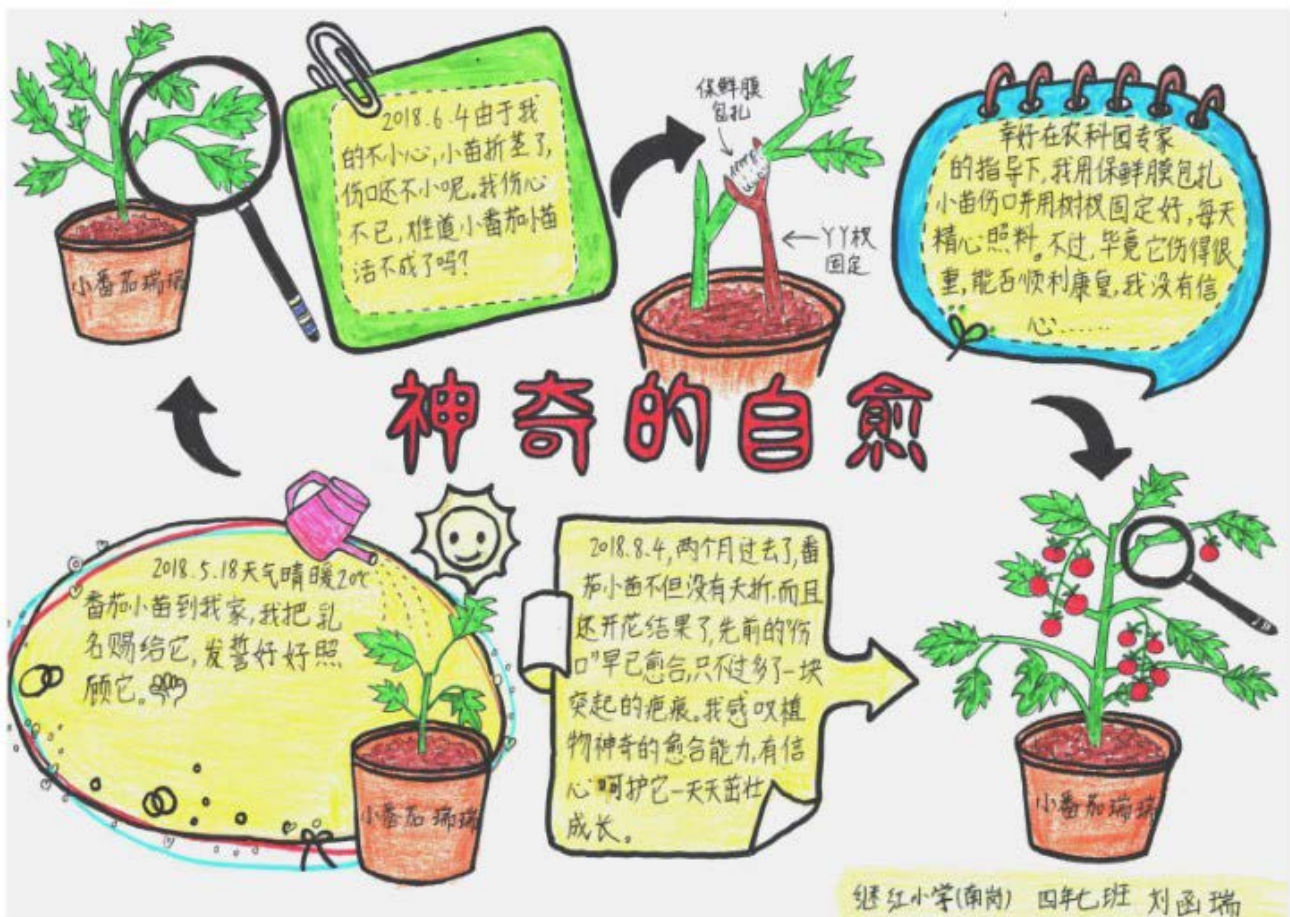 2018.6.4由于我
的不小心,小苗折茎了,
伤口还不小呢。我伤心
不已,难道小番茄小苗
活不成了吗?
小番茄瑞瑞
保鲜膜
包扎
丫丫杈
固定
幸好在农科园专家
的指导下,我用保鲜膜包扎
小苗伤口并用树杈固定好,每天
精心照料。不过,毕竟它伤得很
重,能否顺利康复,我没有信
心……
神奇的自愈
2018.5.18天气晴暖20℃
番茄小苗到我家,我把乳
名赐给它,发誓好好照
顾它。
小番茄瑞瑞
2018.8.4,两个月过去了,番
茄小苗不但没有夭折,而且
还开花结果了,先前的“伤
口”早已愈合,只不过多了一块
突起的疤痕。我感叹植
物神奇的愈合能力,有信
心呵护它一天天茁壮
成长。
小番茄瑞瑞
继红小学(南岗) 四年七班 刘函瑞